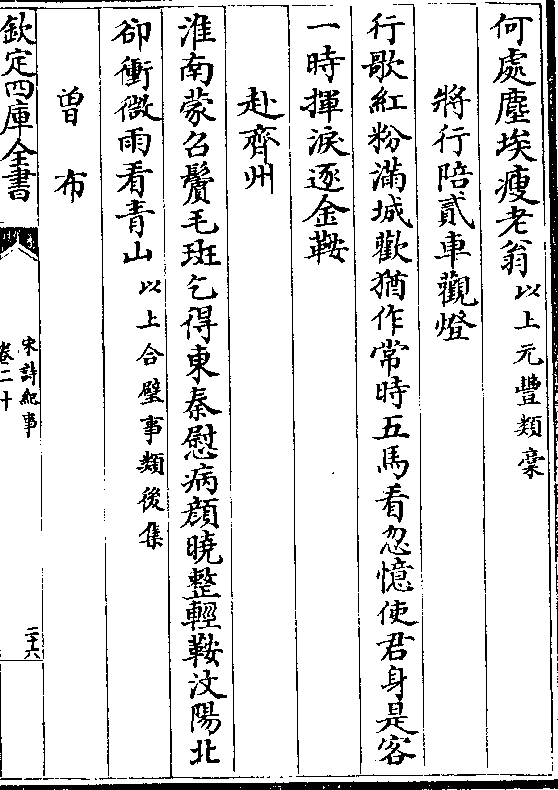 何處塵埃瘦老翁以上元豐類稾
將行陪貳車觀燈
行歌紅粉滿城歡猶作常時五馬看忽憶使君身是客
一時揮淚逐金鞍
赴齊州
淮南蒙召鬢毛斑乞得東秦慰病顔曉整輕鞍汶陽北
卻衝微雨看青山以上合璧事類後集
曾布
欽定四庫全書
宋詩紀事
卷二十
二十六